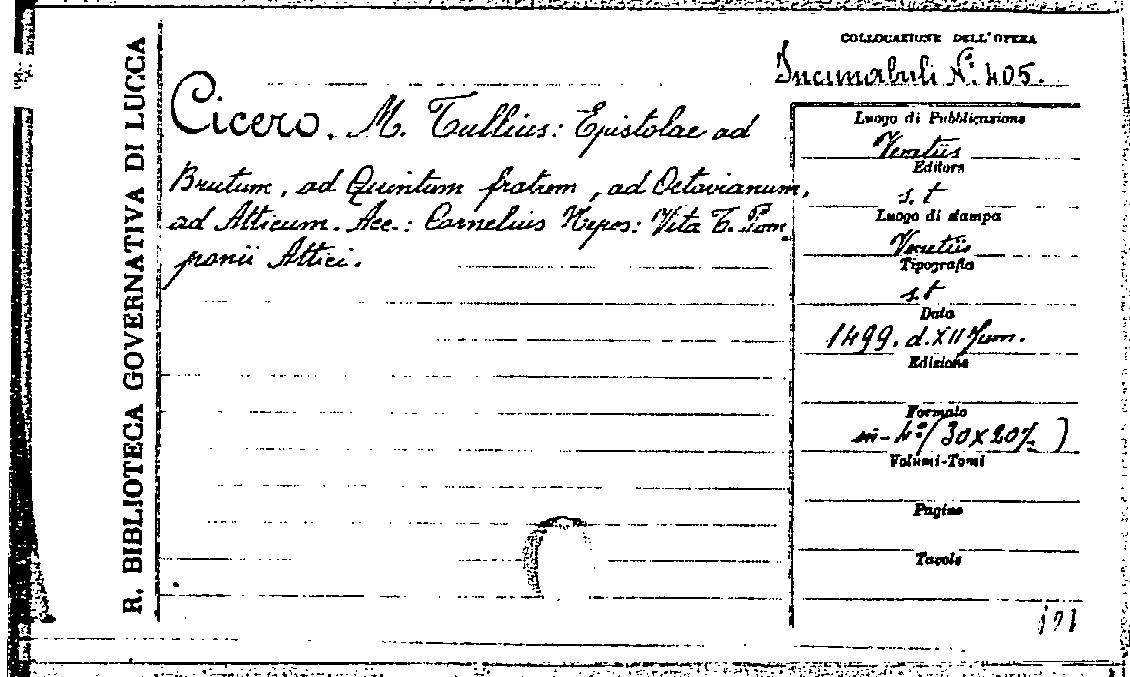 R. BIBLIOTECA GOVERNATIVA DI LUCCA
COLLOCAZIONE DELL'OPERA
Incunabuli N.º 405.
Cicero. M. Tullius: Epistolae ad
Brutum, ad Quintum fratrem, ad Octavianum,
ad Atticum. Acc.: Cornelius Nepos: Vita T. Pom
ponii Attici.
Luogo di Pubblicazione
Venetiis
Editore
s. t
Luogo di stampa
Venetiis
Tipografia
s. t
Data
1499. d. XII Jun.
Edizione
Formato
in-4º (30x20½)
Volumi-Tomi
Pagine
Tavole
191